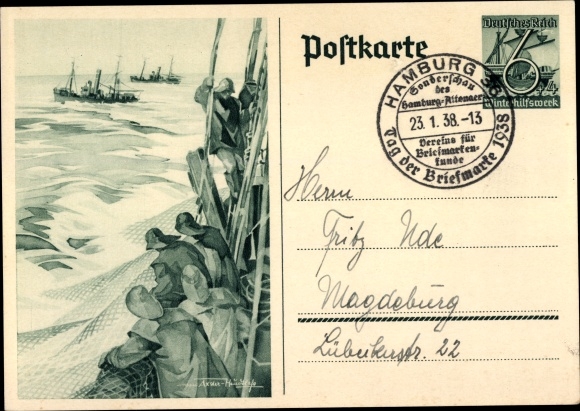 Postkarte
Deutsches Reich
6+4
Winterhilfswerk
HAMBURG 36
Sonderschau
des
Hamburg-Altonaer
23.1.38.-13
Vereins für
Briefmarken-
kunde
Tag der Briefmarke 1938
Herrn
Fritz Ude
Magdeburg
Lübeckerstr. 22